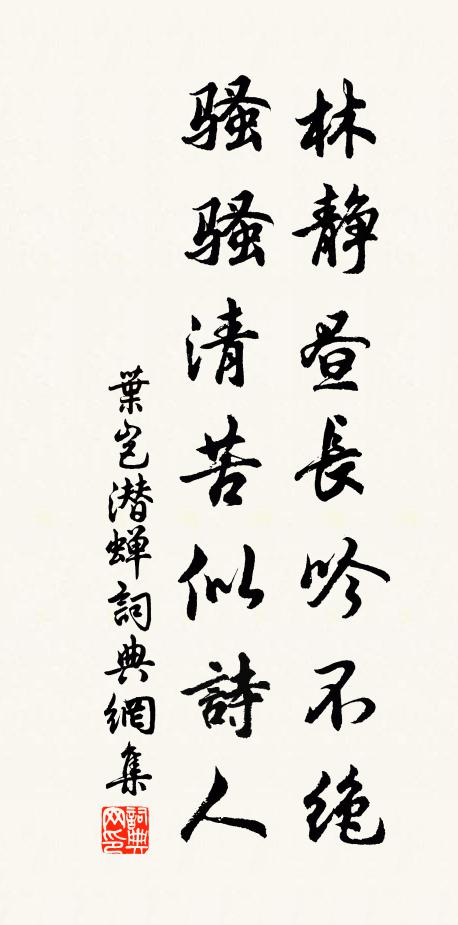 林静昼長吟不绝
骚骚清苦似詩人
葉岂潜蝉詞典網集
詞典网印